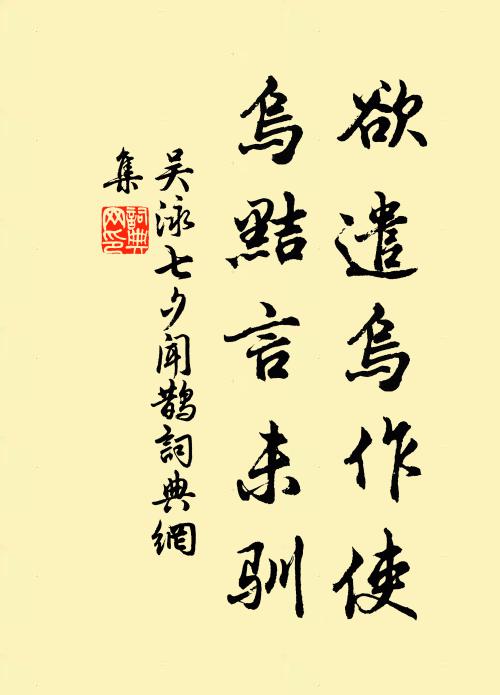 欲遣烏作使
烏黠言未馴
吴泳七夕闻鹊詞典網
集
詞典網印